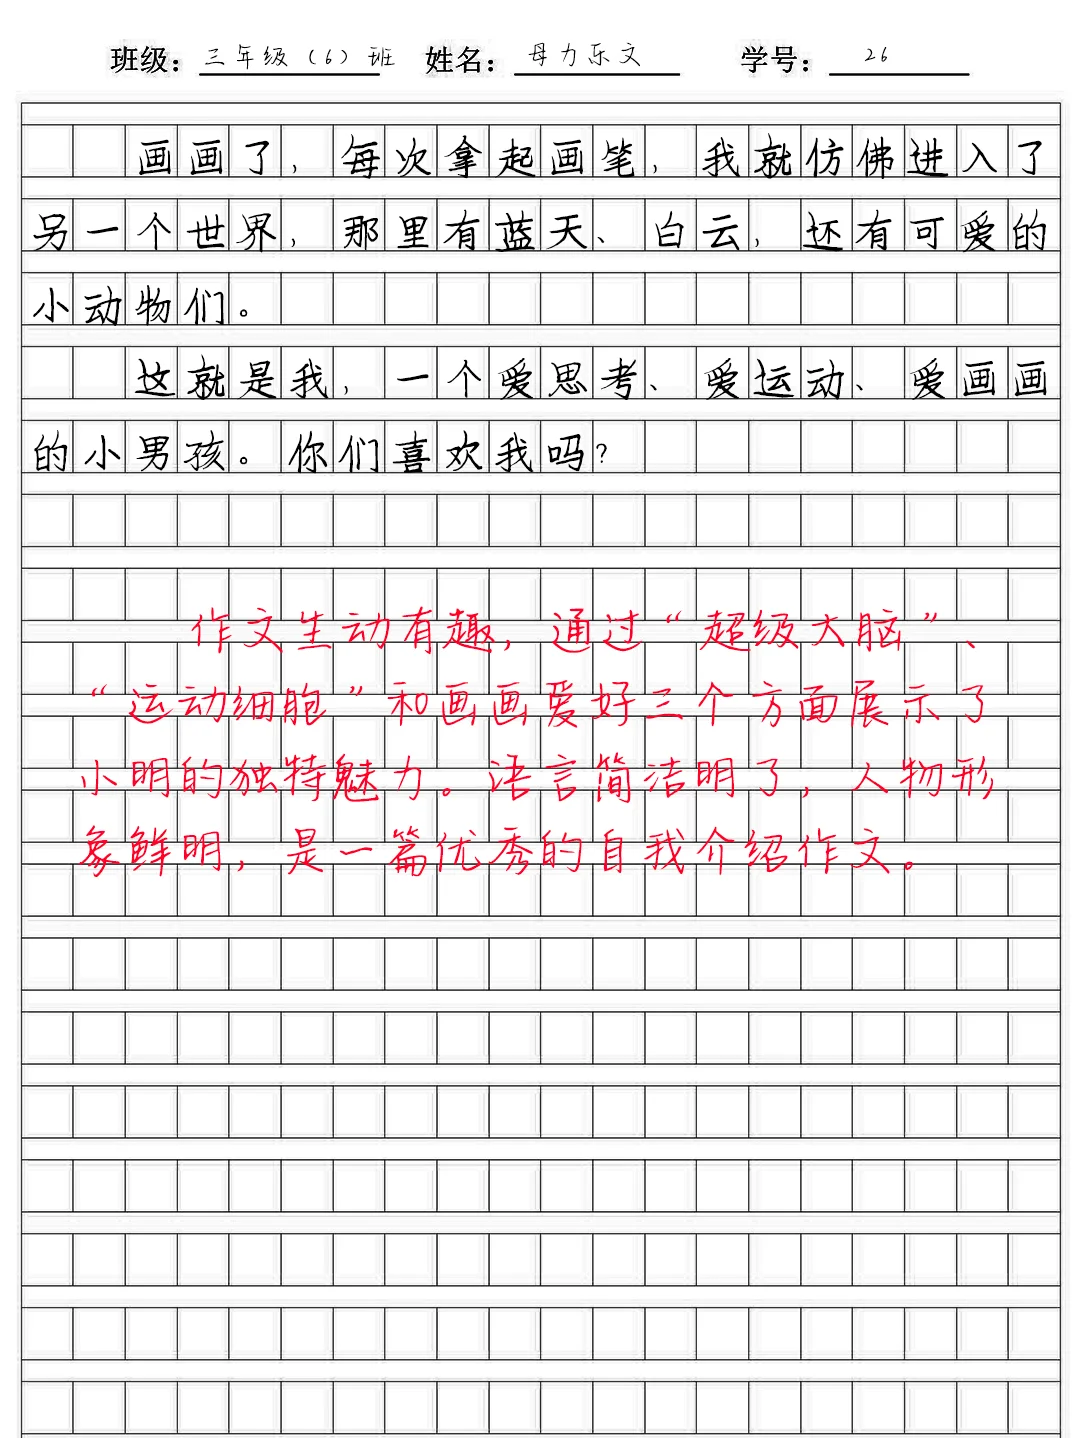 班级：三年级（6）班 姓名：母力乐文 学号：26
画画了，每次拿起画笔，我就仿佛进入了
另一个世界，那里有蓝天、白云，还有可爱的
小动物们。
这就是我，一个爱思考、爱运动、爱画画
的小男孩。你们喜欢我吗？
作文生动有趣，通过“超级大脑”、
“运动细胞”和画画爱好三个方面展示了
小明的独特魅力。语言简洁明了，人物形
象鲜明，是一篇优秀的自我介绍作文。